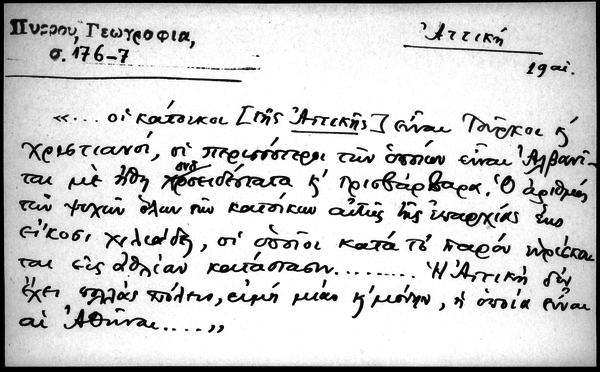 Πύρρου, Γεωγραφία,
σ. 176-7
Ἀττική
19 αἰ.
«... οἱ κάτοικοι [τῆς Ἀττικῆς] εἶναι Τοῦρκοι κ'
χριστιανοί, οἱ περισσότεροι τῶν ὁποίων εἶναι Ἀλβανῖ-
ται μὲ ἤθη κ' Ὁ ἀριθμὸς
τῶν ψυχῶν ὅλων τῶν κατοίκων αὐτῆς τῆς ἐπαρχίας ἕως
εἴκοσι χιλιάδες, οἱ ὁποῖοι κατὰ τὸ παρὸν εὑρίσκον-
ται εἰς ἀθλίαν κατάστασιν......... Ἡ Ἀττικὴ δὲν
ἔχει πολλὰς πόλεις, εἰμὴ μίαν κ' μόνην, ἡ ὁποία εἶναι
αἱ Ἀθῆναι.....»